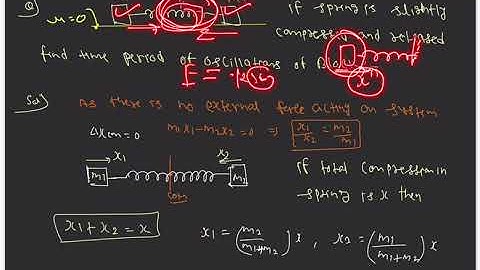 Q)
μ=0
if spring is slightly
compressed and released
find time period of oscillations of Block
F = -
x'
Sol)
As there is no external force acting on system
ΔXcm=0 m1x1-m2x2=0 ⇒ x1/x2 = m2/m1
x1 x2
m1 m2
com
if total compression in
spring is x then
x1+x2=x
x1 = (m2/m1+m2) x , x2 = (m1/m1+m2) x